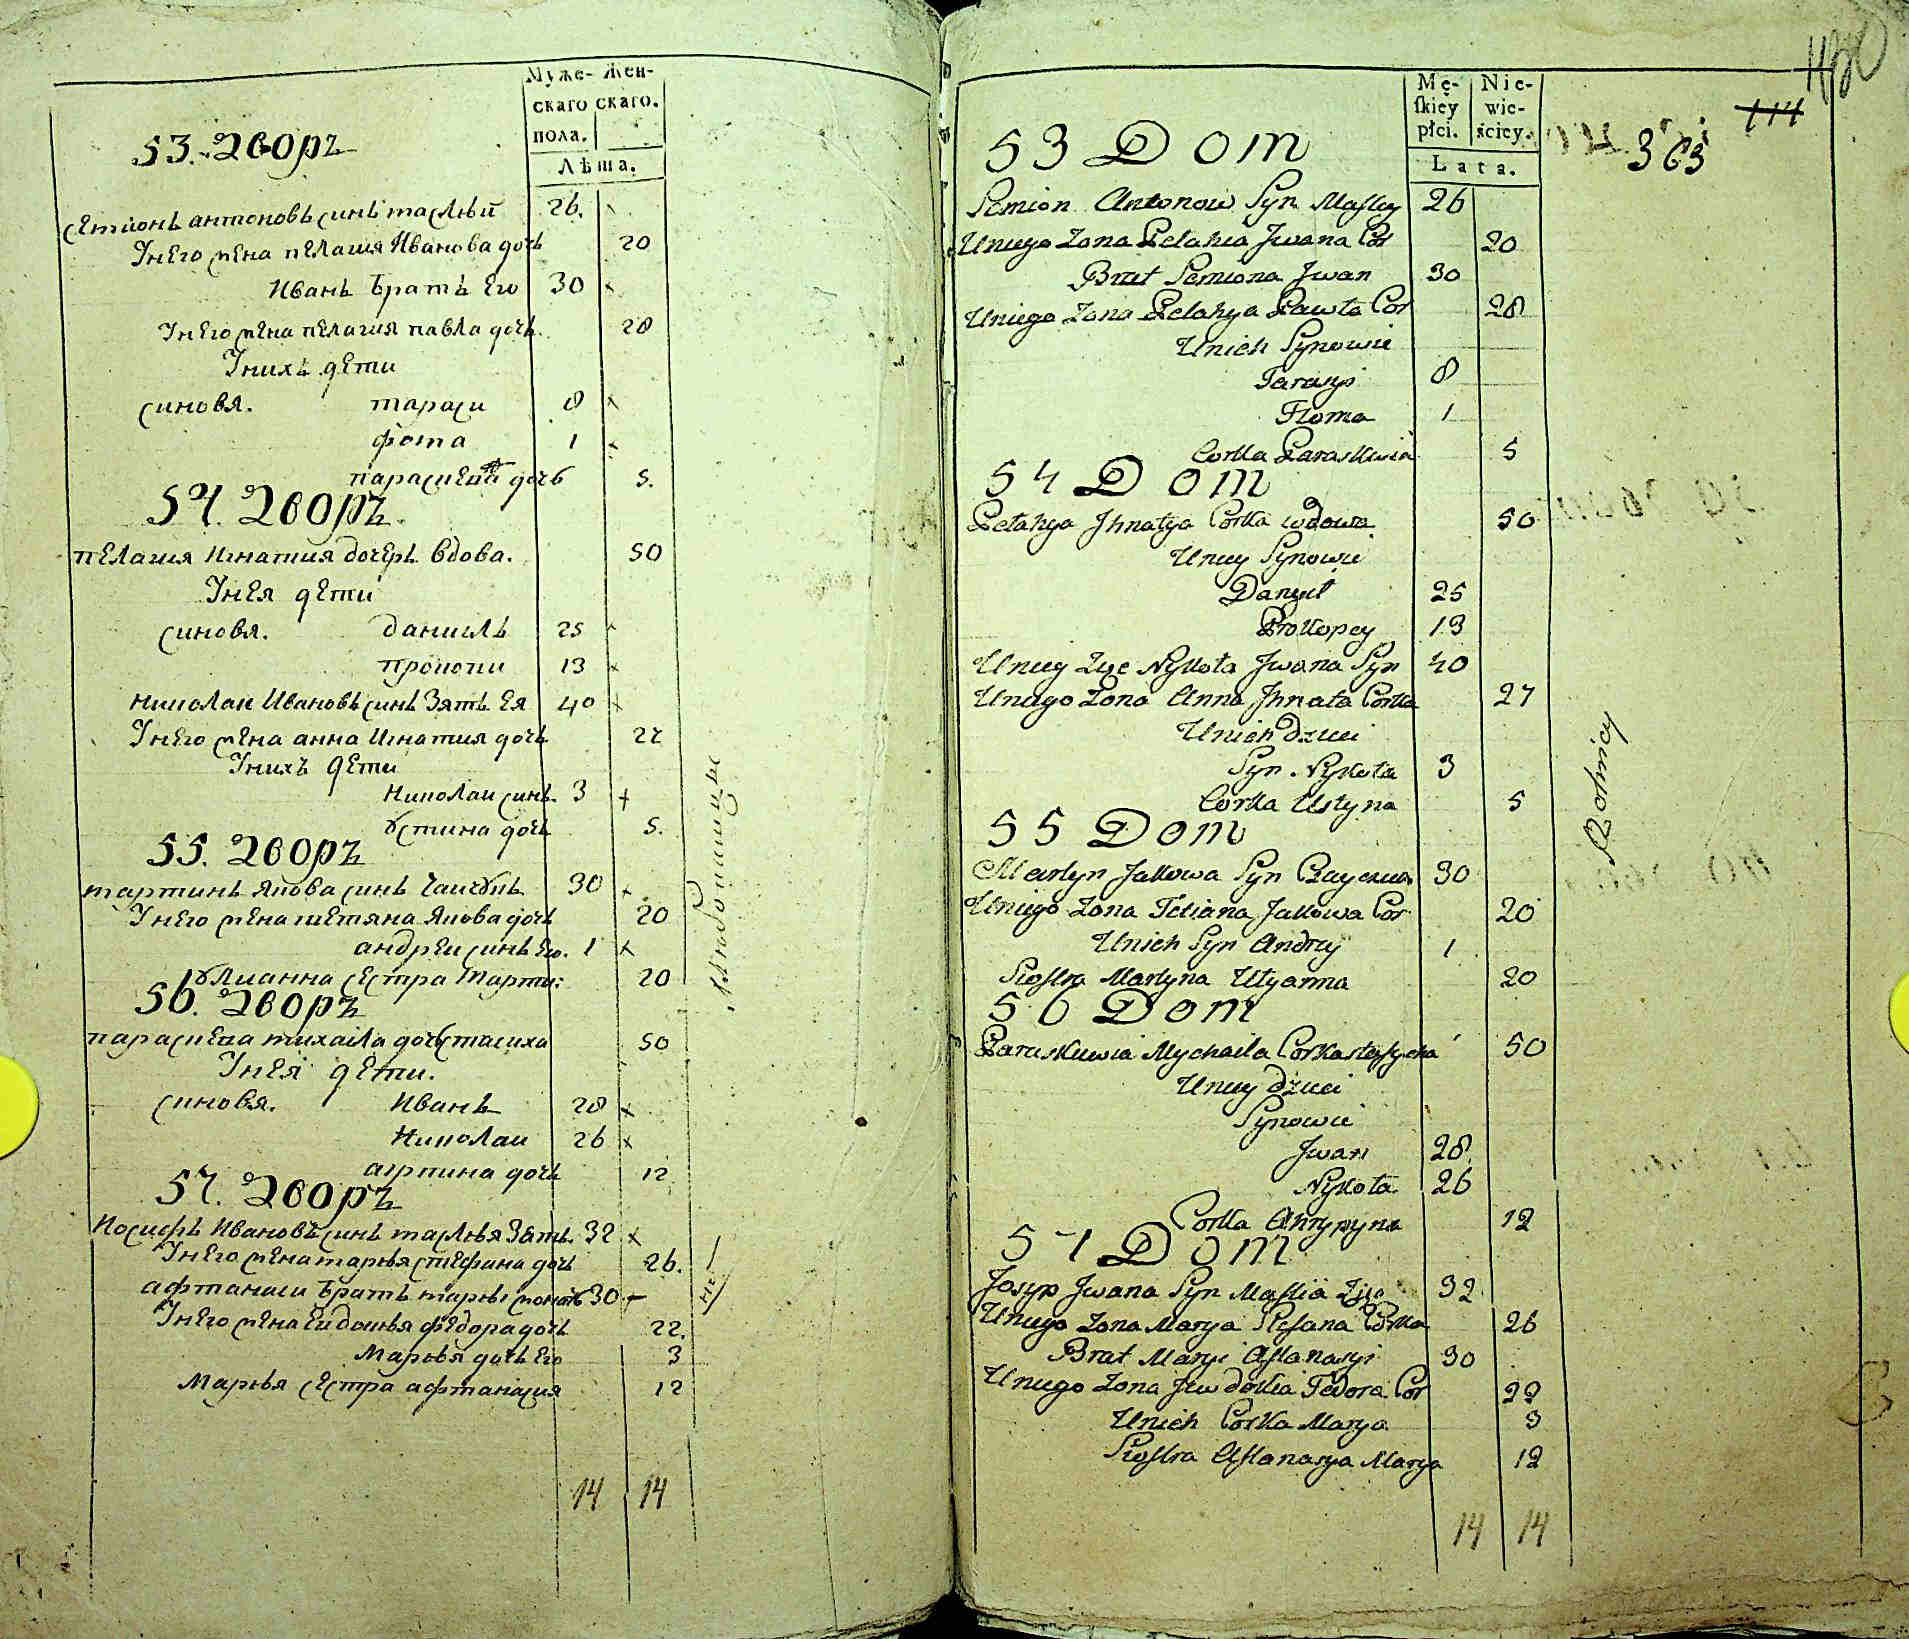 Муже- Жен-
скаго скаго.
пола.
Лѣта.
53. Дворъ
семионъ антоновъ синъ маслюй 26.
Унего жена пелагия Иванова дочь 20
Иванъ братъ Его 30
Унего жена пелагия павла дочь. 28
Унихъ дети
синовя. тараси 8
фома 1
параскевия дочь 5.
54. Дворъ
пелагия Игнатия дочеръ вдова. 50
Унея дети
синовя. даниилъ 25
прокопи 13
николаи Ивановъ синъ Зять Ея 40
Унего жена анна Игнатия дочь 27
Унихъ дети
Николаи синъ. 3
устина дочь 5.
55. Дворъ
мартинъ Якова синъ 30
Унего жена татяна Якова дочь 20
андреи синъ Его. 1
улианна сестра марти: 20
56. Дворъ
параскева михаила дочь стасиха 50
Унея дети.
синовя. Иванъ 28
Николаи 26
агрпина дочь 12
57. Дворъ
Иосифъ Ивановъ синъ маслюя Зять. 32
Унего жена маръя стефана дочь 26.
афтанаси братъ маръи 30
Унего жена Евдокъя федора дочь 22.
Маръя дочь Его 3
Маръя сестра афтанасия 12
14 14
Mę- Nie-
skiey wie-
płci. ściey.
Lata.
363
114
53 Dom
Semion Antonow Syn Masley 26
Uniego Zona Pelahia Jwana Cor 20
Brat Semiona Jwan 30
Uniego Zona Pelahya Pawła Cor 28
Unich Synowie
Tarasyi 8
Floma 1
Corka Paraskiwia 5
54 Dom
Pelahya Jhnatya Corka wdowa 50
Uniey Synowie
Danyił 25
Prokopey 13
Uniey Zięć Nykoła Jwana Syn 40
Uniego Zona Anna Jhnata Corka 27
Unich dzieci
Syn Nykoła 3
Corka Ustyna 5
55 Dom
Martyn Jakowa Syn 30
Uniego Zona Tetiana Jakowa Cor 20
Unich Syn Andrzy 1
Siostra Martyna Ulyanna 20
56 Dom
Paraskiewia Mychaila Corka stasycha 50
Uniey dzieci
Synowie
Jwan 28
Nykoła 26
Corka Ahrypyna 12
57 Dom
Josyp Jwana Syn Maslia Zięć 32
Uniego Zona Marya Stefana Corka 26
Brat Maryi Aftanasyi 30
Uniego Zona Jewdokia Fedora Cor 22
Unich Corka Marya 3
Siostra Aftanasya Marya 12
14 14
Robotnicy